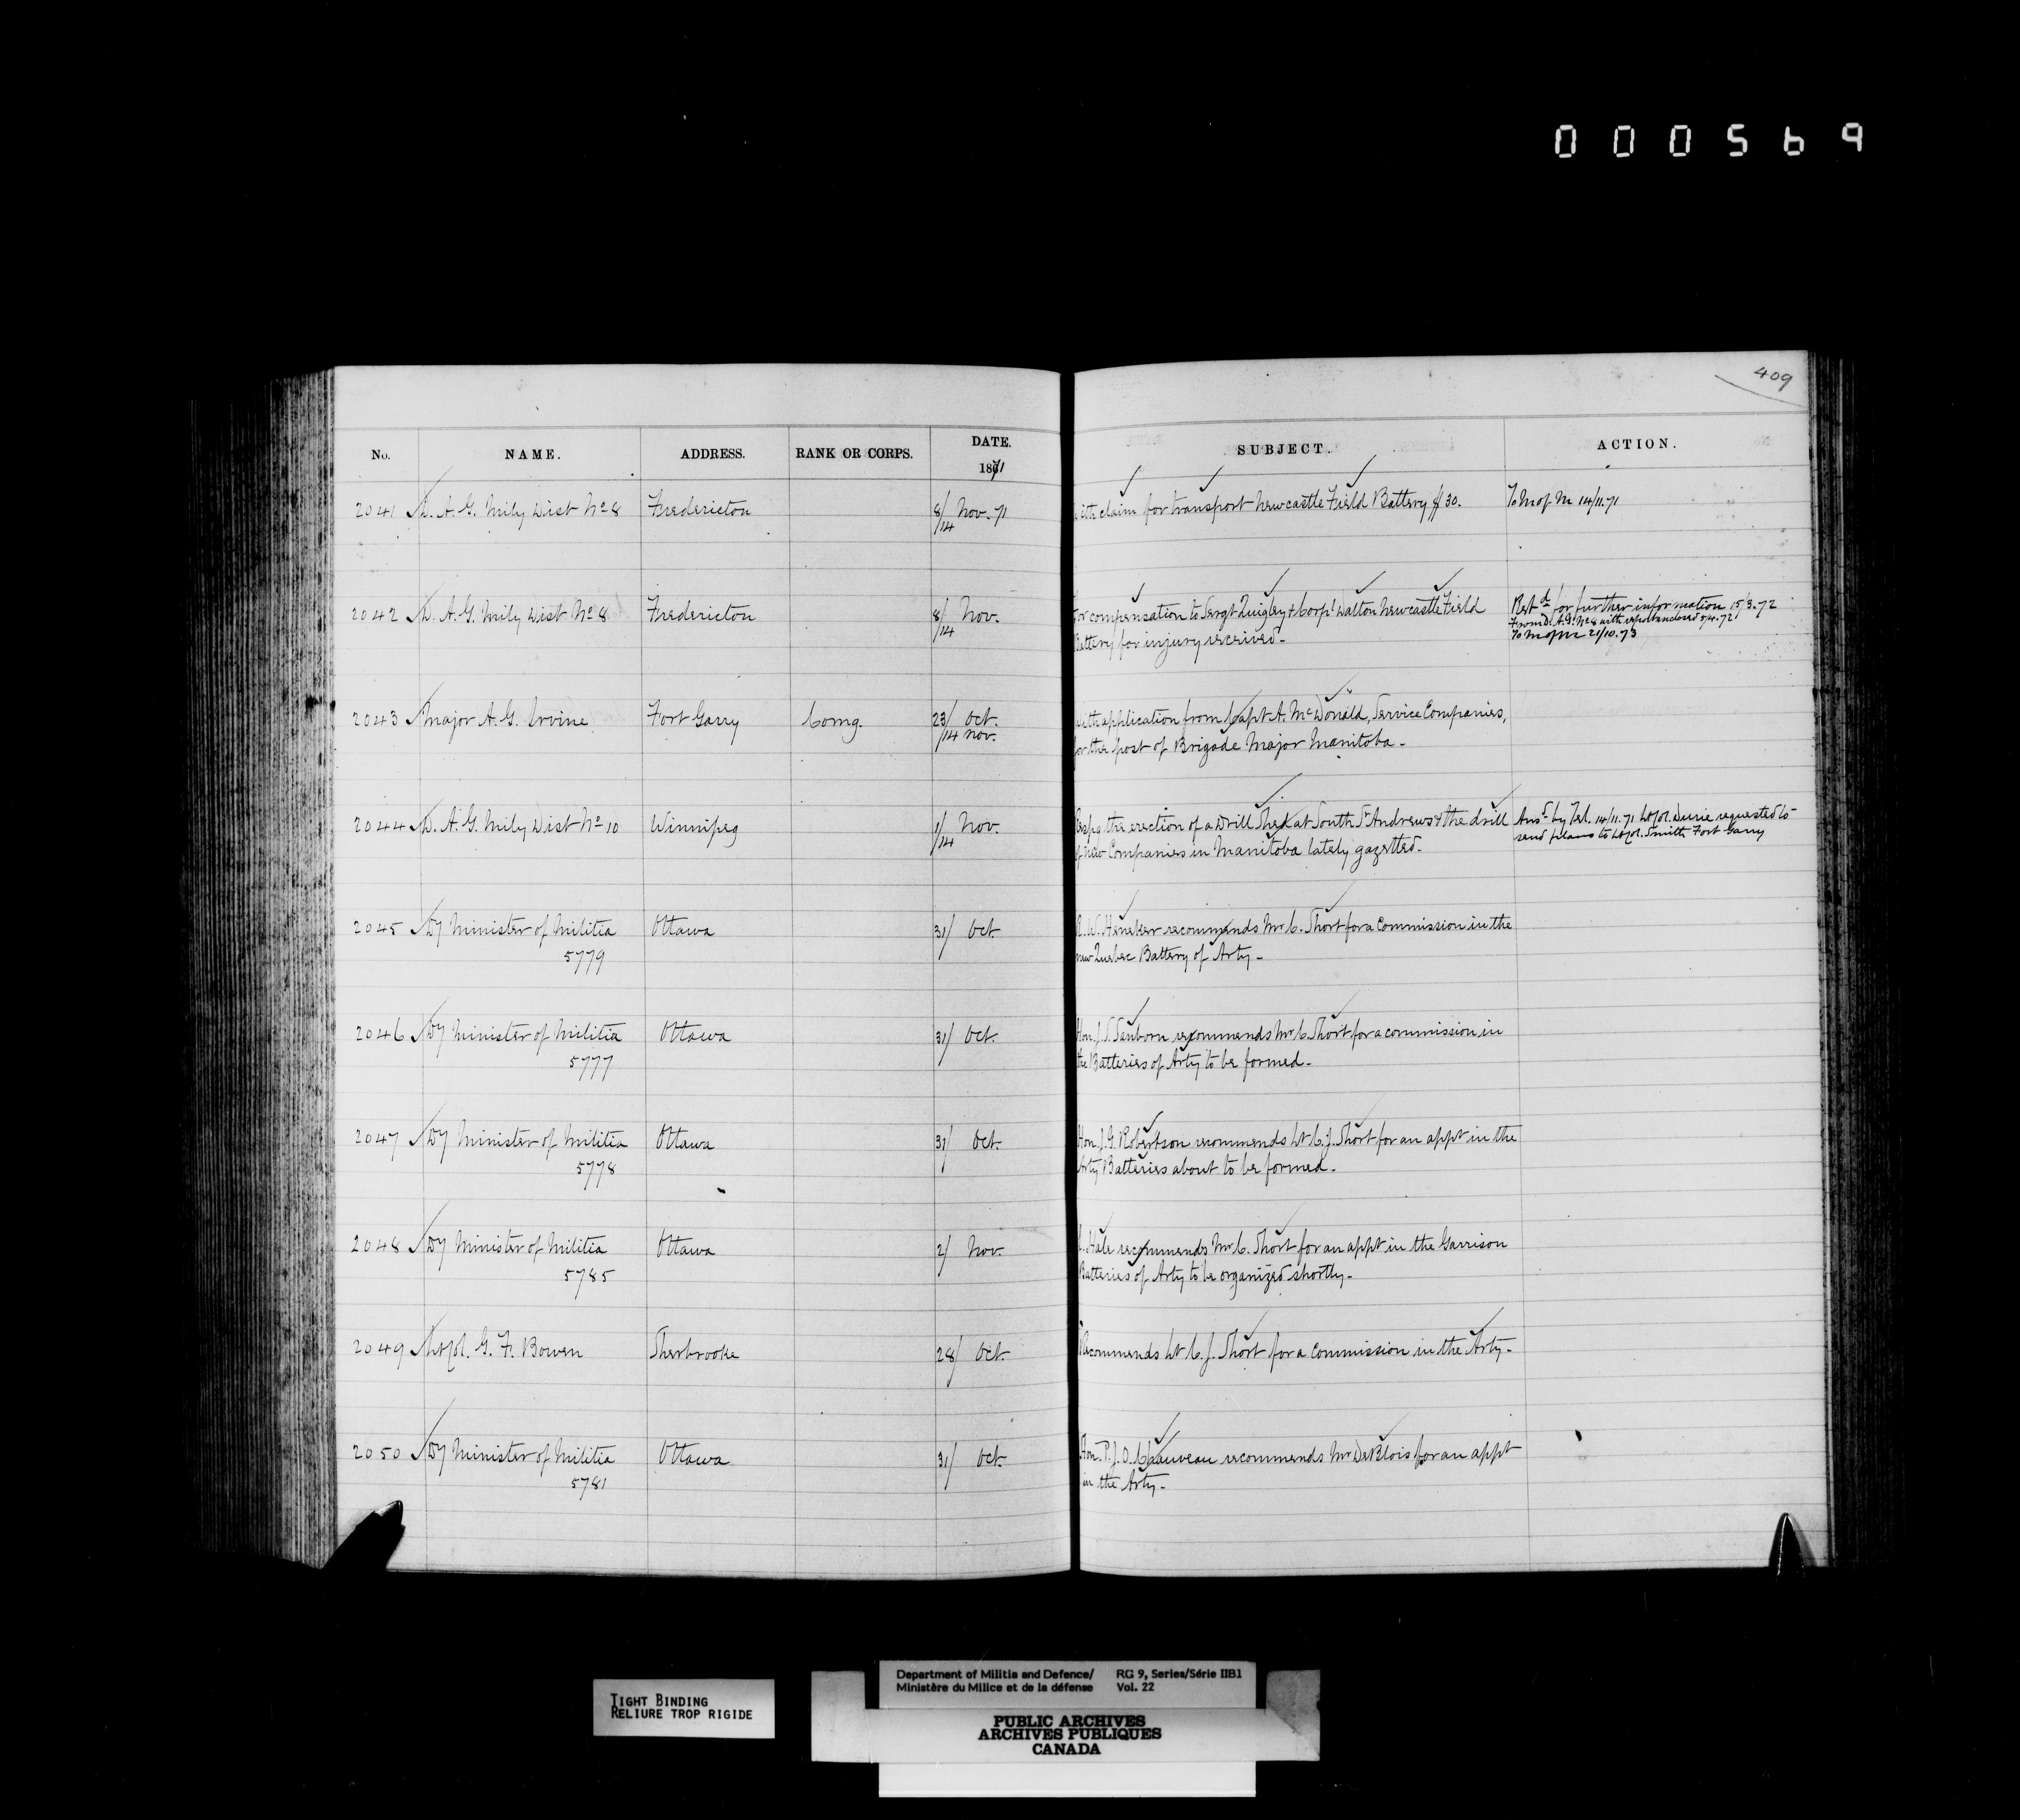 000569
409
No. NAME. ADDRESS. RANK OR CORPS. DATE. 1871 SUBJECT. ACTION.
2041 D. A. G. Mily Dist No 8 Fredericton 8/14 Nov. 71 with claim for transport Newcastle Field Battery $30. To M of M 14/11.71
2042 D. A. G. Mily Dist No 8 Fredericton 8/14 Nov. for compensation to Sergt Quigley & Corpl Walton Newcastle Field Retd for further information 15/3.72
From D.A.G. No 8 with report enclosed 5/4.72
Battery for injury received - To M of M 21/10.73
2043 Major A. G. Irvine Fort Garry Comg. 23/ Oct. with application from Capt A. McDonald, Service Companies,
/14 Nov. for the post of Brigade Major Manitoba -
2044 D. A. G. Mily Dist No 10 Winnipeg 1/14 Nov. the erection of a Drill Shed at South St Andrews & the drill Ansd by Tel. 14/11.71 Lt Col. Durie requested to
of new Companies in Manitoba lately gazetted. send plans to Lt Col. Smith Fort Garry
2045 Dy Minister of Militia Ottawa 31/ Oct. R. W. Heneker recommends Mr C. Short for a Commission in the
5779 new Quebec Battery of Arty -
2046 Dy Minister of Militia Ottawa 31/ Oct. Hon. J. S. Sanborn recommends Mr C. Short for a commission in
5777 the Batteries of Arty to be formed -
2047 Dy Minister of Militia Ottawa 31/ Oct. Hon. J. G. Robertson recommends Lt C. J. Short for an appt in the
5778 Arty Batteries about to be formed -
2048 Dy Minister of Militia Ottawa 2/ Nov. Hale recommends Mr C. Short for an appt in the Garrison
5785 Batteries of Arty to be organized shortly -
2049 Lt Col. G. F. Bowen Sherbrooke 28/ Oct. Recommends Lt C. J. Short for a Commission in the Arty -
2050 Dy Minister of Militia Ottawa 31/ Oct. Hon. P. J. O. Chauveau recommends Mr De Blois for an appt
5781 in the Arty -
TIGHT BINDING
RELIURE TROP RIGIDE
Department of Militia and Defence/ RG 9, Series/Série IIB1
Ministère du Milice et de la défense Vol. 22
PUBLIC ARCHIVES
ARCHIVES PUBLIQUES
CANADA